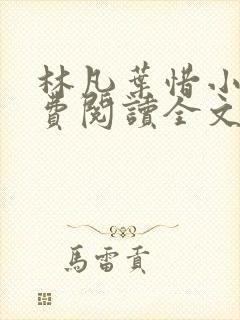 林凡葉惜小
費閱讀全文
馬雷貢